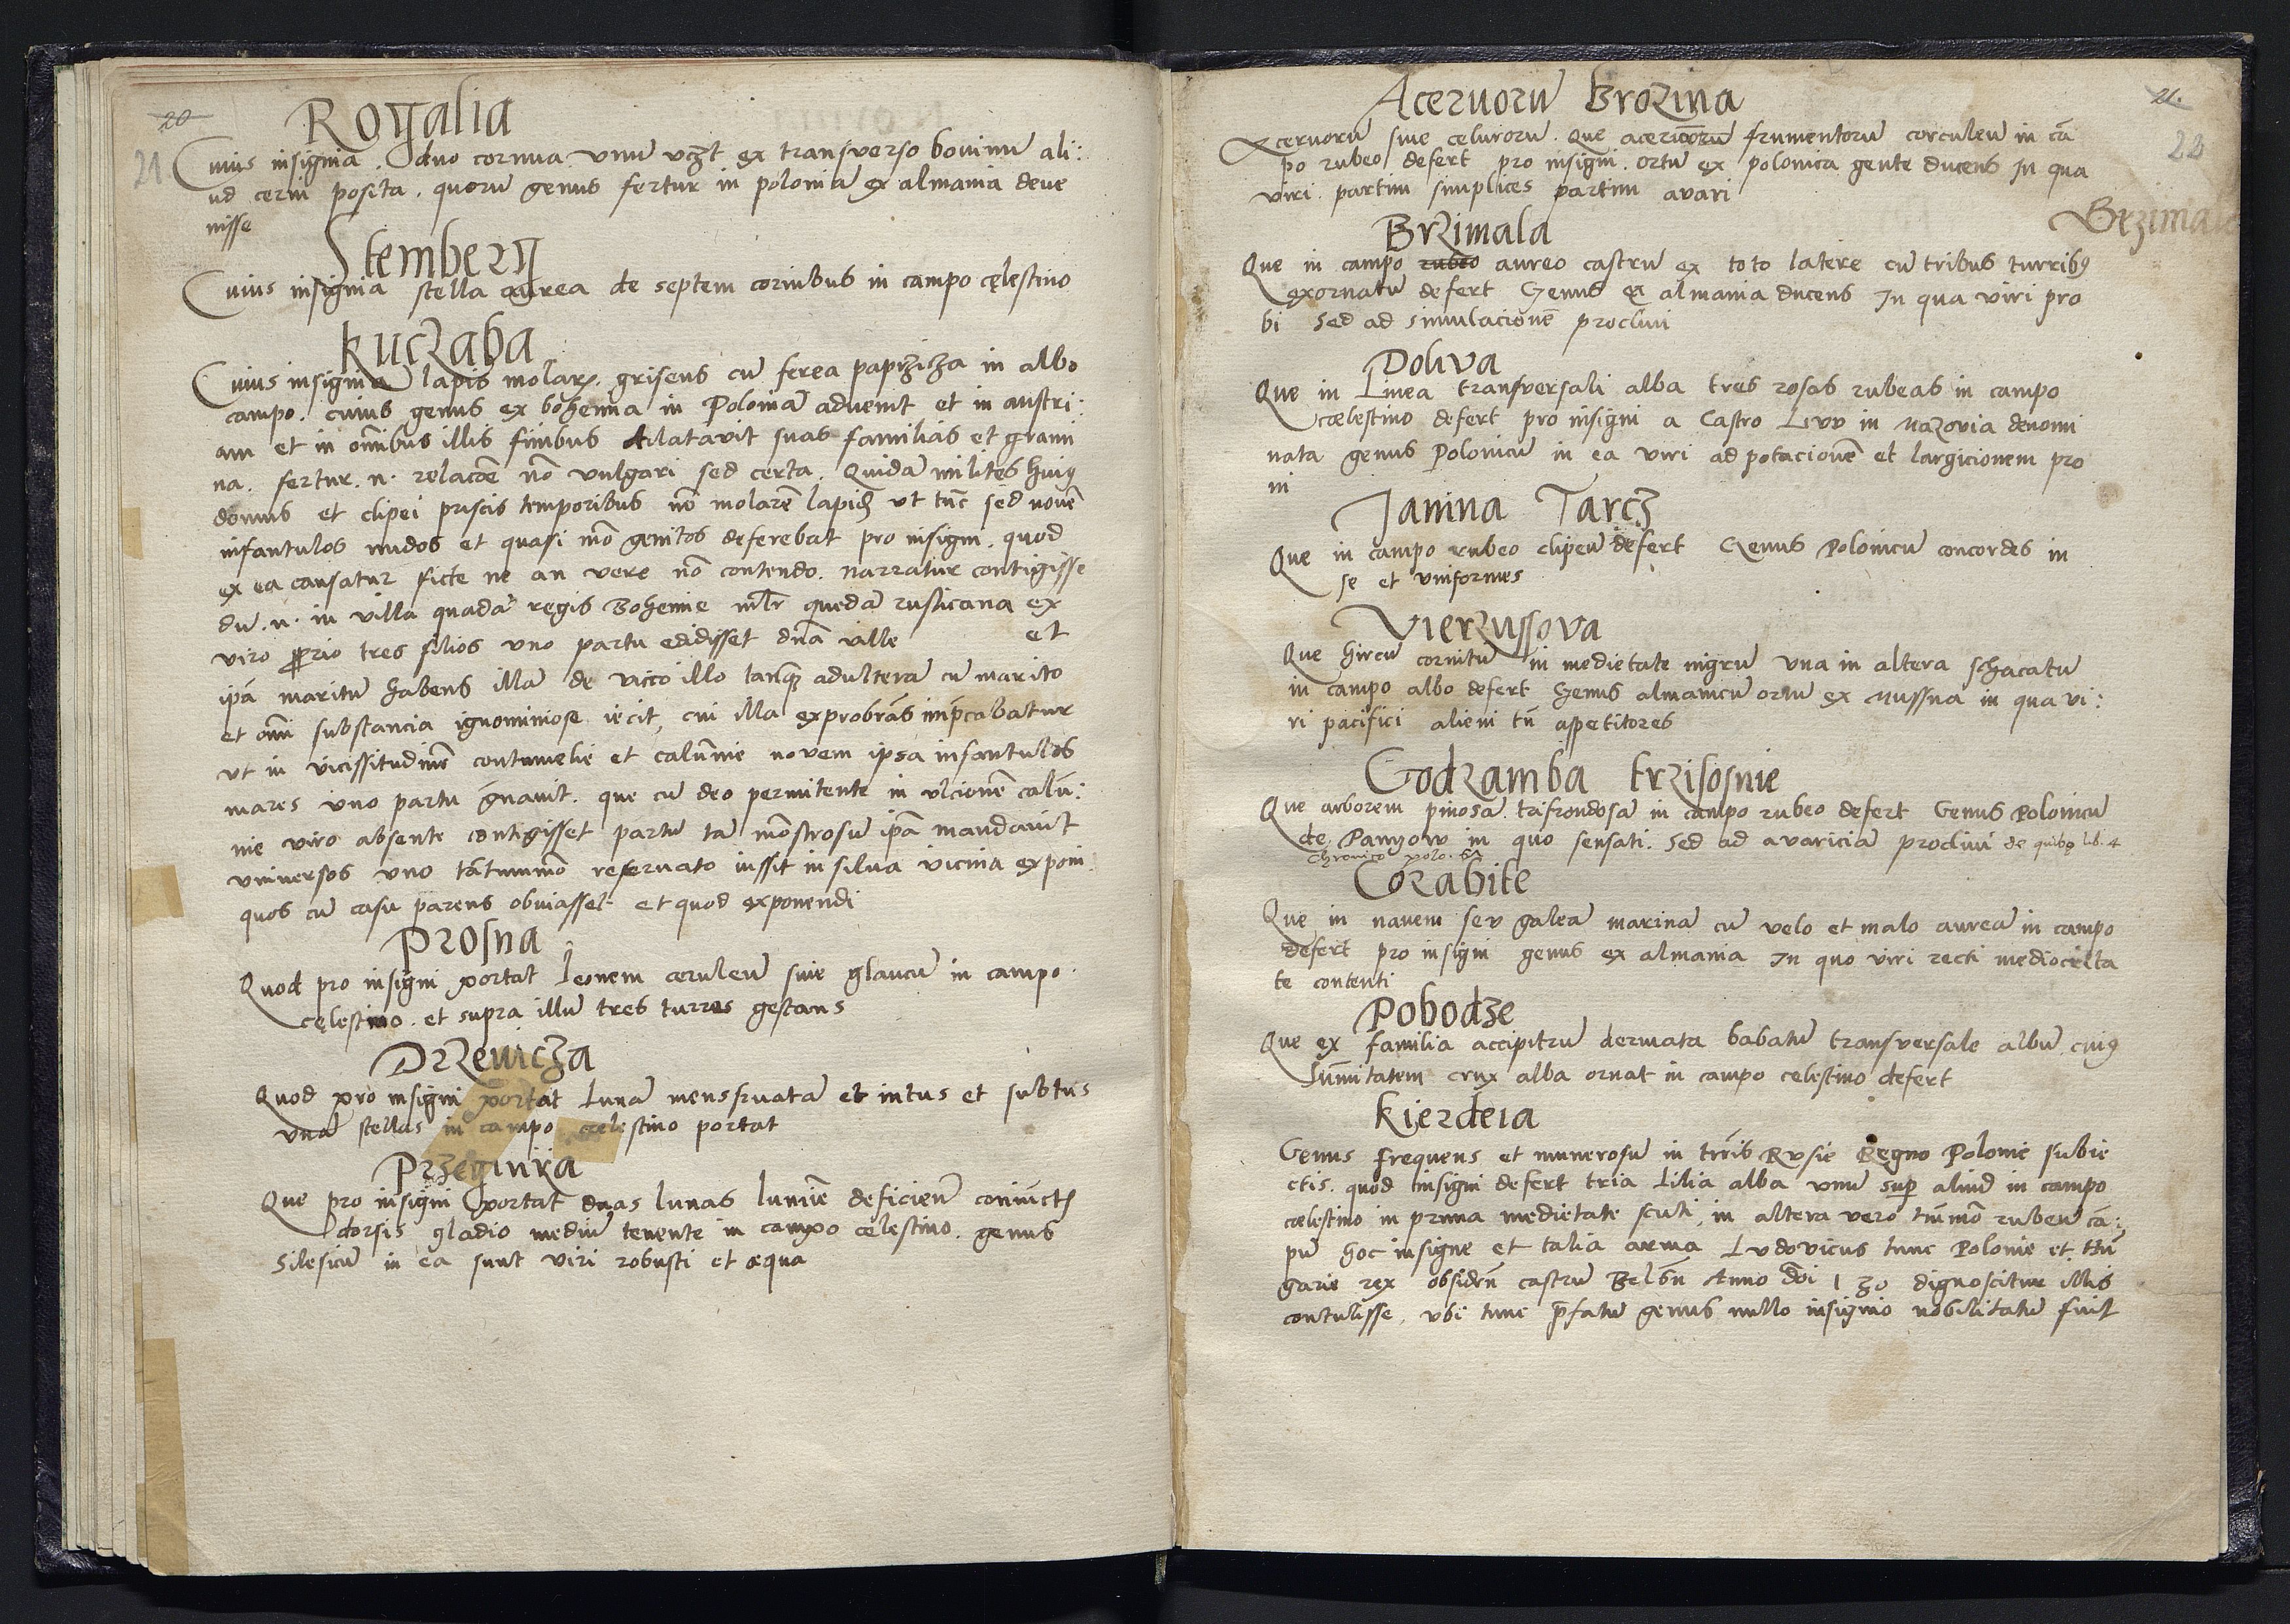 20
21
Rogalia
Cuius insignia. duo cornua vnum vczt ex transverso bovinũ ali:
ud cervi posita. quorũ genus fertur in poloniã ex almania deve
nisse
Stemberg
Cuius insignia stella aurea de septem cornibus in campo cęlestino
Kuczaba
Cuius insignia lapis molaris. griseus cũ ferea paprzicza in albo
campo. cuius genus ex bohemia in Poloniã advenit et in austri:
am et in oĩnibus illis finibus dilatavit suas familias et grami
na. fertur. n. relacõe nõ vulgari sed certa. Quidã milites huiꝰ
domus et clipei priscis temporibus nõ molarẽ lapidẽ vt tũc sed novẽ
infantulos nudos et quasi mõ genitos deferebãt pro insigni. quod
ex ea causatur ficte ne an vere nõ contendo. narratur contigisse
dũ. n. in villa quadã regis Bohemie mlr̃ quedã rusticana ex
viro ꝓprio tres filios uno partu edidisset dñã ville et
ipã maritũ habens illã de vicco illo tanq̃ adulterã cũ marito
et oĩni substancia ignominiose iecit, cui illa exprobrãs imp̃cabatur
vt in vicissitudinẽ contumelie et calũnie novem ipsa infantulos
mares uno partu g̃navit. que cũ deo permitente in vlcionẽ calũ:
nie viro absente contigisset partũ tã mõstrosũ ipã mandavit
universos uno tãtummõ reservato iussit in silva vicina exponi.
quos cũ casu parens obviasset et quod exponendi
Prosna
Quod pro insigni portat Leonem ceruleũ sive glaucũ in campo.
cęlestino. et supra illũ tres turres gestans
Drzewicza
Quod pro insigni portat Lunã menstruatã et intus et subtus
vnã stellas in campo cælestino portat
Przeginia
Que pro insigni portat duas lunas lumĩe deficien̄ coniũctis
dorsis gladio mediũ tenente in campo celestino. genus
Silesicũ in ea sunt viri robusti et æqua
21.
22
Acervorũ Brozina
Acervorũ sive celurorũ. Que acervorũ frumentorũ corculeũ in cã
po rubeo defert pro insigni. ortũ ex polonica gente ducens In qua
viri partim simplices partim avari
Brzimala
Brzimala
Que in campo rubeo aureo castrũ ex toto latere cũ tribus turribꝰ
exornatũ defert Genus ex almania ducens In qua viri pro
bi sed ad simulacionẽ proclivi
Doliva
Que in Linea transversali alba tres rosas rubeas in campo
cœlestino defert pro insigni a Castro Luv in Mazovia denomi
nata genus Polonicũ in ea viri ad potacionẽ et largicionem pro
ni
Janina Tarcz
Que in campo rubeo clipeũ defert Genus Polonicũ concordes in
se et uniformes
Vierzussova
Que hircũ cornitũ in medietate nigrũ vna in altera schacatũ
in campo albo defert Genus almanicũ ortũ ex Mussna in qua vi:
ri pacifici alieni tñ aspetitores
Godzamba trzisosnie
Que arborem pinosã trifrondosã in campo rubeo defert Genus Polonicũ
de Panyow in quo sensati. Sed ad avariciã proclivi de quibꝰ lib. 4
chronico polo.
Corabite
Que in navem sev galeã marinã cũ velo et malo aureã in campo
defert pro insigni genus ex almania In quo viri recti mediocrita
te contenti
Pobodze
Que ex familia accipitrũ dermata babatũ transversale albũ cuiꝰ
Sũmitatem crux alba ornat in campo celestino defert
Kierdeia
Genus frequens et numerosũ in tr̃rib Rvsie Regno Polonie subie
ctis. quod insigni defert tria Lilia alba vnũ sup aliud in campo
cœlestino in prima medietate scuti, in altera vero tũmõ rubeũ cã:
pũ hoc insigne et talia arma Ludovicus tunc Polonie et Hũ
garie rex obsidẽn castrũ Belsen̄ Anno dõi 1 30 dignoscitur illis
contulisse, vbi tunc p̃fatũ genus nullo insignio nobilitatũ fuit